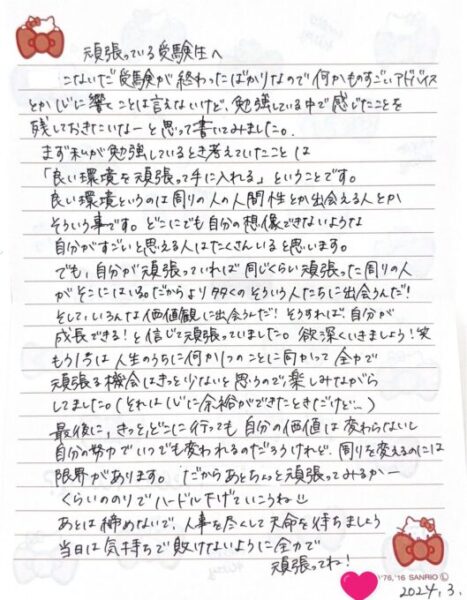 頑張っている受験生へ
こないだ受験が終わったばかりなので何かものすごいアドバイス
とか心に響くことは言えないけど、勉強している中で感じたことを
残しておきたいなーと思って書いてみました。
まず私が勉強しているとき考えていたことは
「良い環境を頑張って手に入れる」ということです。
良い環境というのは周りの人の人間性とか出会える人とか
そういう事です。どこにでも自分の想像できないような
自分がすごいと思える人はたくさんいると思います。
でも、自分が頑張っていれば同じくらい頑張った周りの人
がそこにはいる。だからより多くのそういう人たちに出会うんだ!
そして、いろんな価値観に出会うんだ!そうすれば、自分が
成長できる!と信じて頑張っていました。欲深くいきましょう!笑
もう1つは人生のうちに何か1つのことに向かって全力で
頑張る機会はきっと少ないと思うので、楽しみながら
してました。(それは心に余裕ができたときだけど…)
最後に、きっと、どこに行っても自分の価値は変わらないし
自分の努力でいつでも変われるのだろうけれど、周りを変えるのには
限界があります。だからあとちょっと頑張ってみるかー
くらいののりでハードル下げていこうね
あとは諦めないで、人事を尽くして天命を待ちましょう
当日は気持ちで敗けないように全力で
頑張ってね!
'76,'16 SANRIO Ⓛ
2024.3.